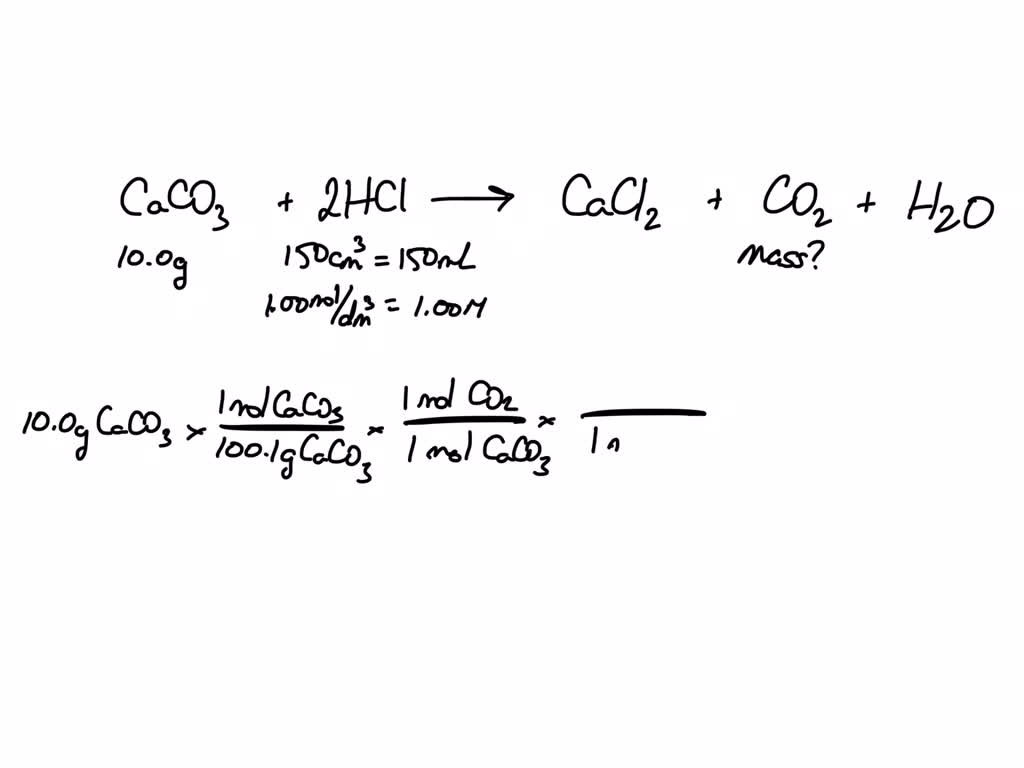 CaCO₃ + 2HCl ⟶ CaCl₂ + CO₂ + H₂O
10.0g 150cm³ = 150mL mass?
1.00mol/dm³ = 1.00M
10.0g CaCO₃ × 1 mol CaCO₃ / 100.1g CaCO₃ × 1 mol CO₂ / 1 mol CaCO₃ × / 1 n